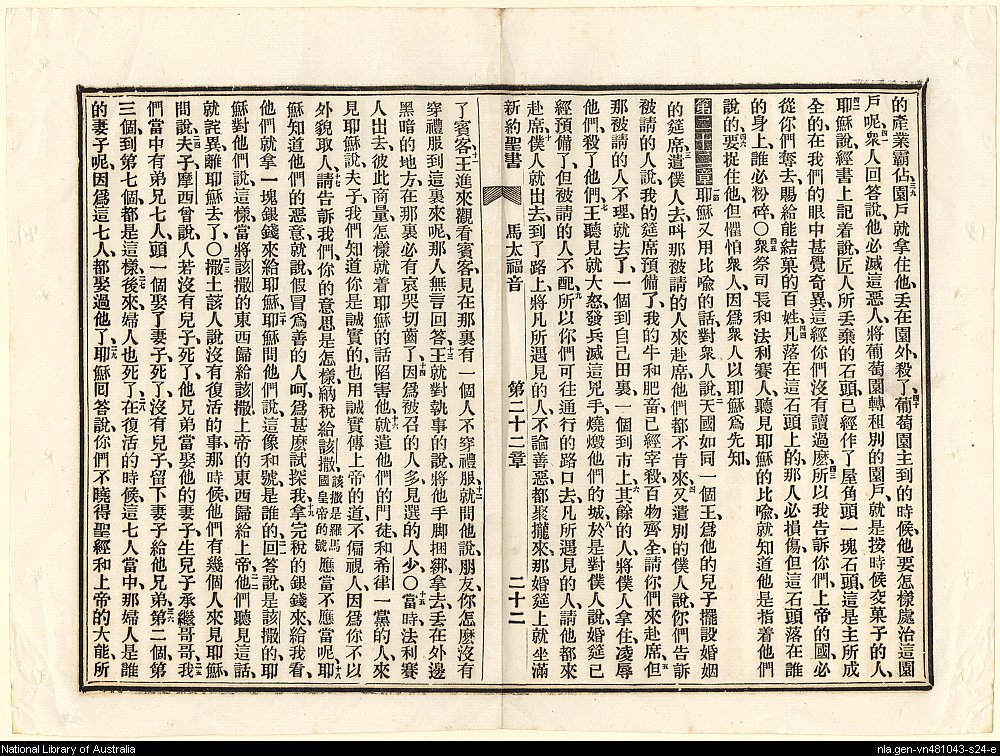 的產業霸佔園戶就拿住他、丟在園外殺了、葡萄園主到的時候、他要怎樣處治這園
戶呢、衆人回答說、他必滅這惡人、將葡萄園轉租別的園戶、就是按時候交菓子的人、
耶穌說、經書上記着說、匠人所丟棄的石頭、已經作了屋角頭一塊石頭、這是主所成
全的、在我們的眼中甚覺奇異、這經你們沒有讀過麽、所以我告訴你們、上帝的國、必
從你們奪去、賜給能結菓的百姓、凡落在這石頭上的、那人必損傷、但這石頭落在誰
的身上、誰必粉碎、○衆祭司長和法利賽人、聽見耶穌的比喻、就知道他是指着他們
說的、要捉住他、但懼怕衆人、因爲衆人以耶穌爲先知、
第二十二章 耶穌又用比喻的話對衆人說、天國如同一個王、爲他的兒子擺設婚姻
的筵席、遣僕人去叫那被請的人來赴席、他們都不肯來、又遣別的僕人說、你們告訴
被請的人說、我的筵席預備了、我的牛和肥畜已經宰殺、百物齊全、請你們來赴席、但
那被請的人不理就去了、一個到自己田裏、一個到市上、其餘的人、將僕人拿住凌辱
他們、殺了他們、王聽見就大怒、發兵滅這兇手、燒燬他們的城、於是對僕人說、婚筵已
經預備了、但被請的人不配、所以你們可往通行的路口去、凡所遇見的人、請他都來
赴席、僕人就出去、到了路上、將凡所遇見的人、不論善惡都聚攏來、那婚筵上就坐滿
新約聖書 馬太福音 第二十二章 二十二
了賓客、王進來觀看賓客、見在那裏有一個人不穿禮服、就問他說、朋友、你怎麼沒有
穿禮服到這裏來呢、那人無言回答、王就對執事的說、將他手脚捆綁拿去、丟在外邊
黑暗的地方、在那裏必有哀哭切齒了、因爲被召的人多、見選的人少、○當時法利賽
人出去、彼此商量、怎樣就着耶穌的話陷害他、就遣他們的門徒、和希律一黨的人、來
見耶穌說、夫子、我們知道你是誠實的、也用誠實傳上帝的道、不偏視人、因爲你不以
外貌取人、請告訴我們、你的意思是怎樣、納稅給該撒該撒是羅馬國皇帝的號應當不應當呢、耶
穌知道他們的惡意、就說、假冒爲善的人呵、爲甚麽試探我、拿完稅的銀錢來給我看、
他們就拿一塊銀錢來給耶穌、耶穌問他們說、這像和號是誰的、回答說、是該撒的、耶
穌對他們說、這樣當將該撒的東西歸給該撒、上帝的東西歸給上帝、他們聽見這話、
就詫異、離耶穌去了、○撒土該人說沒有復活的事、那時候他們有幾個人來見耶穌
問說、夫子、摩西曾說、人若沒有兒子死了、他兄弟當娶他的妻子、生兒子承繼哥哥、我
們當中有弟兄七人、頭一個娶了妻子死了、沒有兒子、留下妻子給他兄弟、第二個第
三個、到第七個都是這樣、後來婦人也死了、在復活的時候、這七人當中、那婦人是誰
的妻子呢、因爲這七人都娶過他了、耶穌回答說、你們不曉得聖經和上帝的大能、所
National Library of Australia
nla.gen-vn481043-s24-e